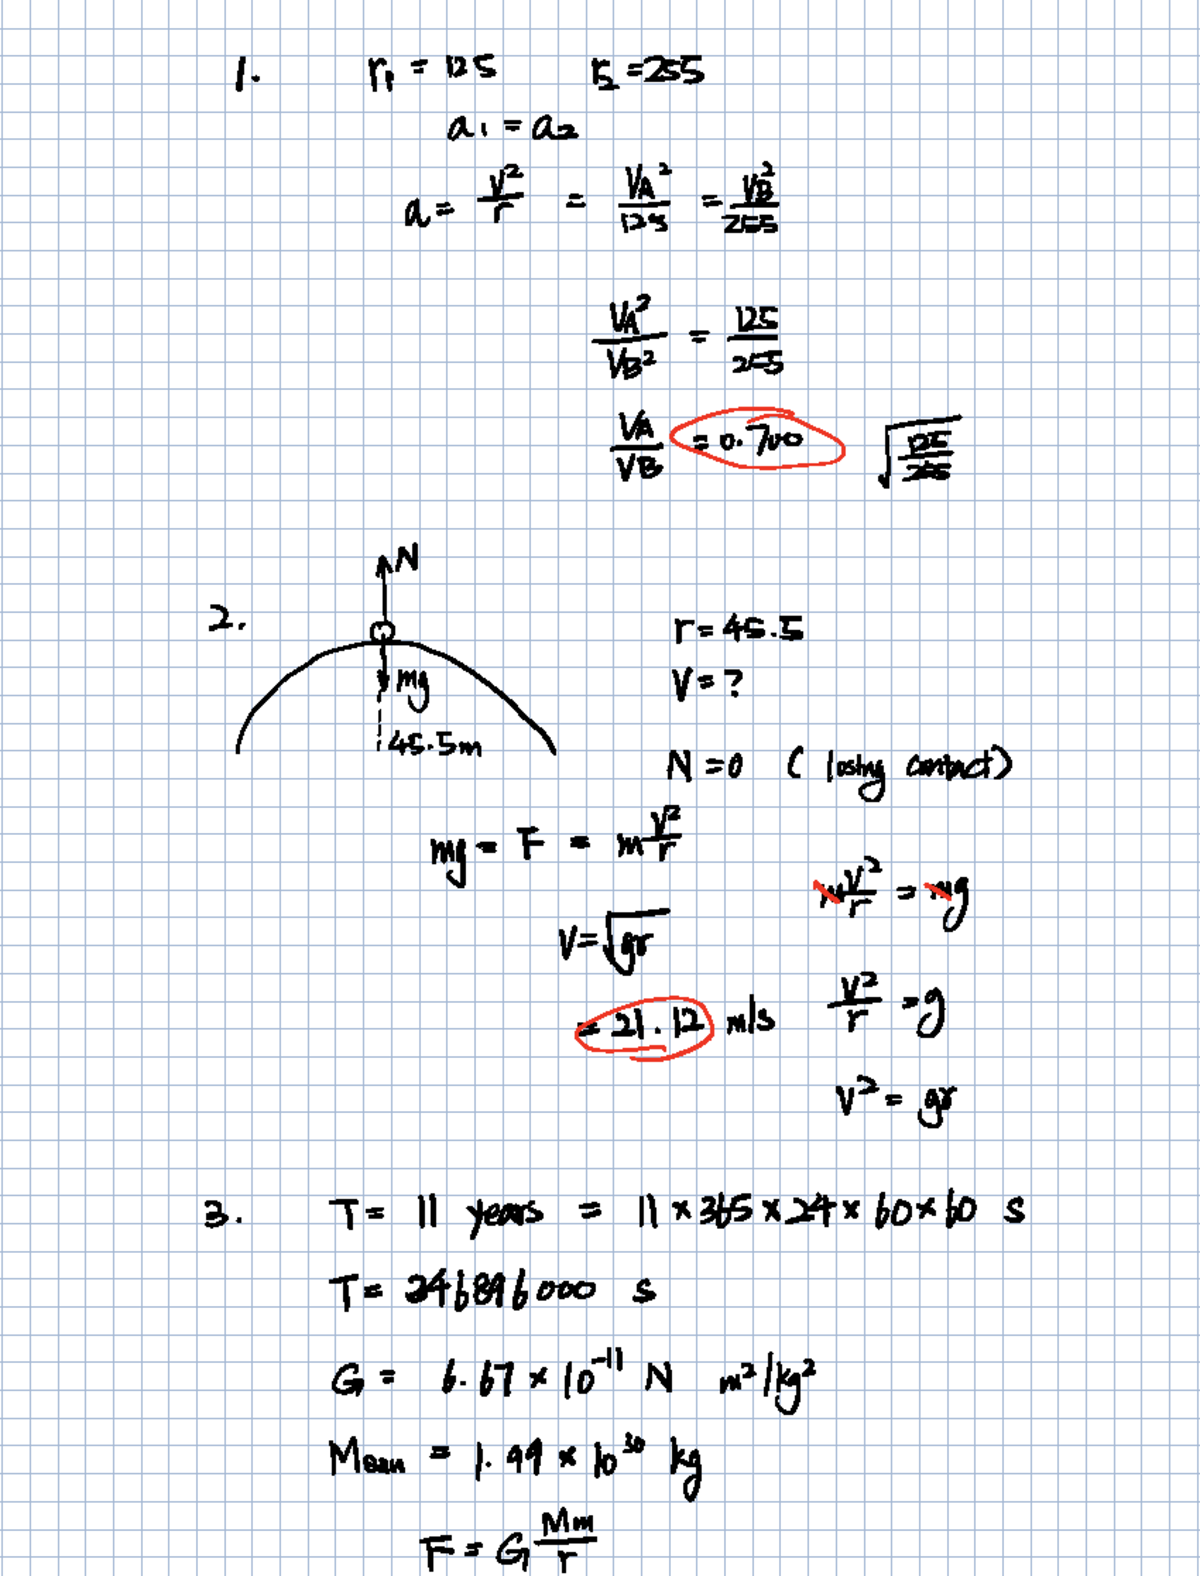 1. r₁ = 125 r₂ = 255
a₁ = a₂
a = V²/r = VA²/125 = VB²/255
VA²/VB² = 125/255
VA/VB = 0.700 √(125/255)
2. N
mg
45.5m
r = 45.5
V = ?
N = 0 ( losing contact)
mg = F = m V²/r
m V²/r = mg
V = √gr
= 21.12 m/s
V²/r = g
V² = gr
3. T = 11 years = 11 × 365 × 24 × 60 × 60 s
T = 346896000 s
G = 6.67 × 10⁻¹¹ N m²/kg²
Msun = 1.99 × 10³⁰ kg
F = G Mm/r